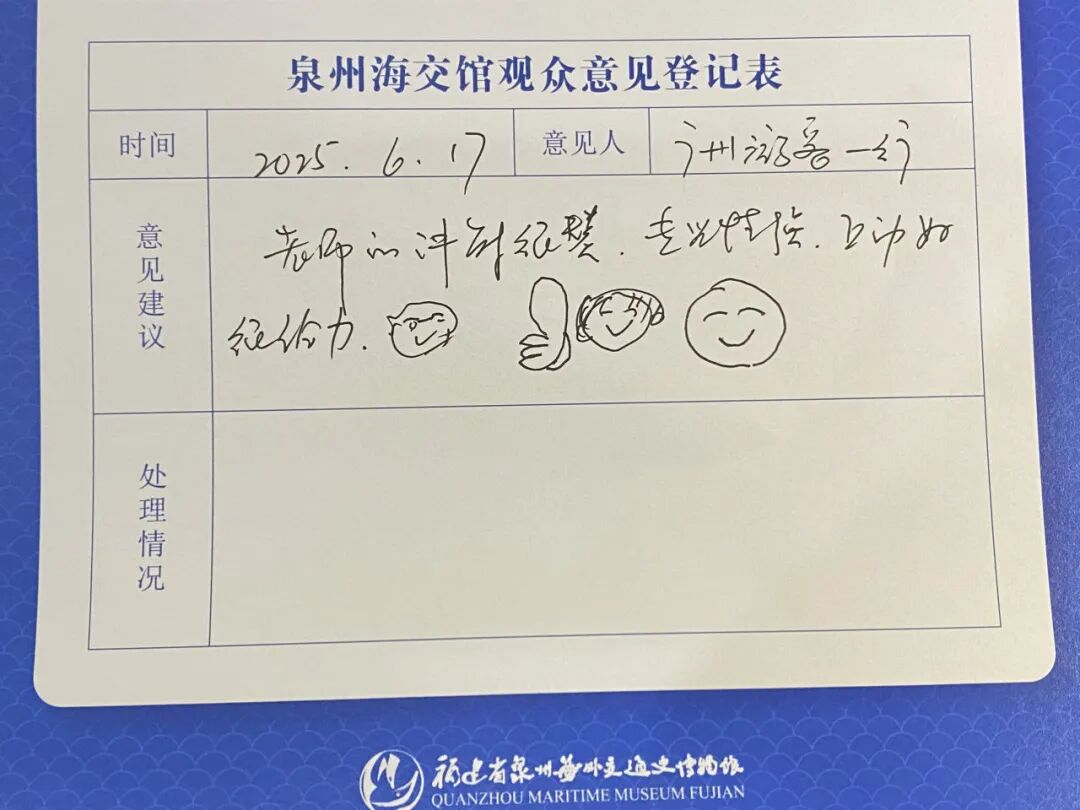 泉州海交馆观众意见登记表
时间 2025.6.17 意见人 广州游客一行
意见建议
老师的讲解很赞.专业性强.互动好
很给力.
处理情况
福建省泉州海外交通史博物馆
QUANZHOU MARITIME MUSEUM FUJIAN